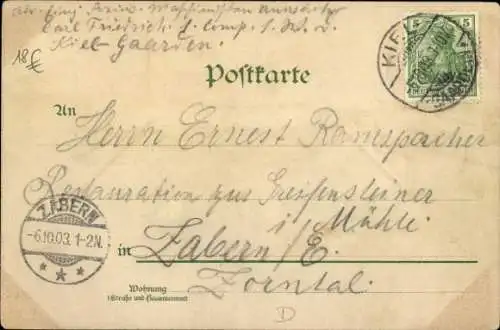 Carl Friedrich 1. Comp. I. W. D.
Kiel Gaarden.
18 £
KIEL
5 5
Postkarte
An
Herrn Ernest Ramspacher
Restauration zur Greifensteiner
i/ Mühle
ZABERN
-6.10.03. 1-2N.
in Zabern i/E.
Zorntal.
Wohnung
(Straße und Hausnummer)
D